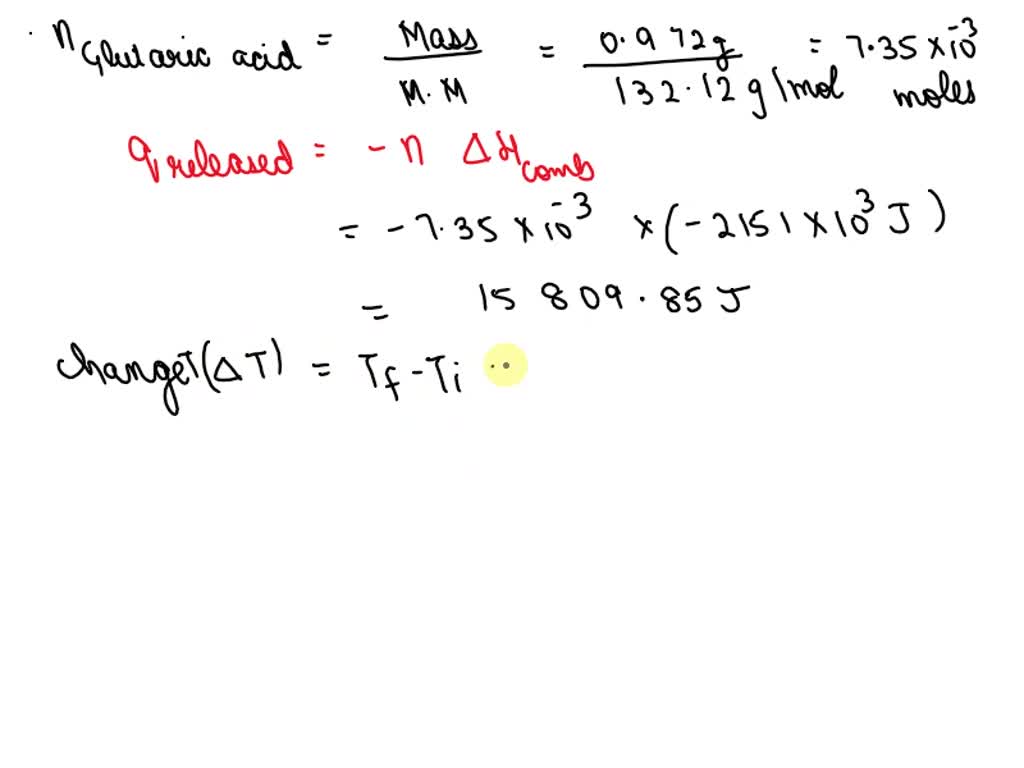 n Glutaric acid = Mass / M.M = 0.972g / 132.12 g/mol = 7.35 × 10⁻³ moles
q released = - n ΔH comb
= - 7.35 × 10⁻³ × (- 2151 × 10³ J)
= 15 809.85 J
Change T (ΔT) = Tf - Ti